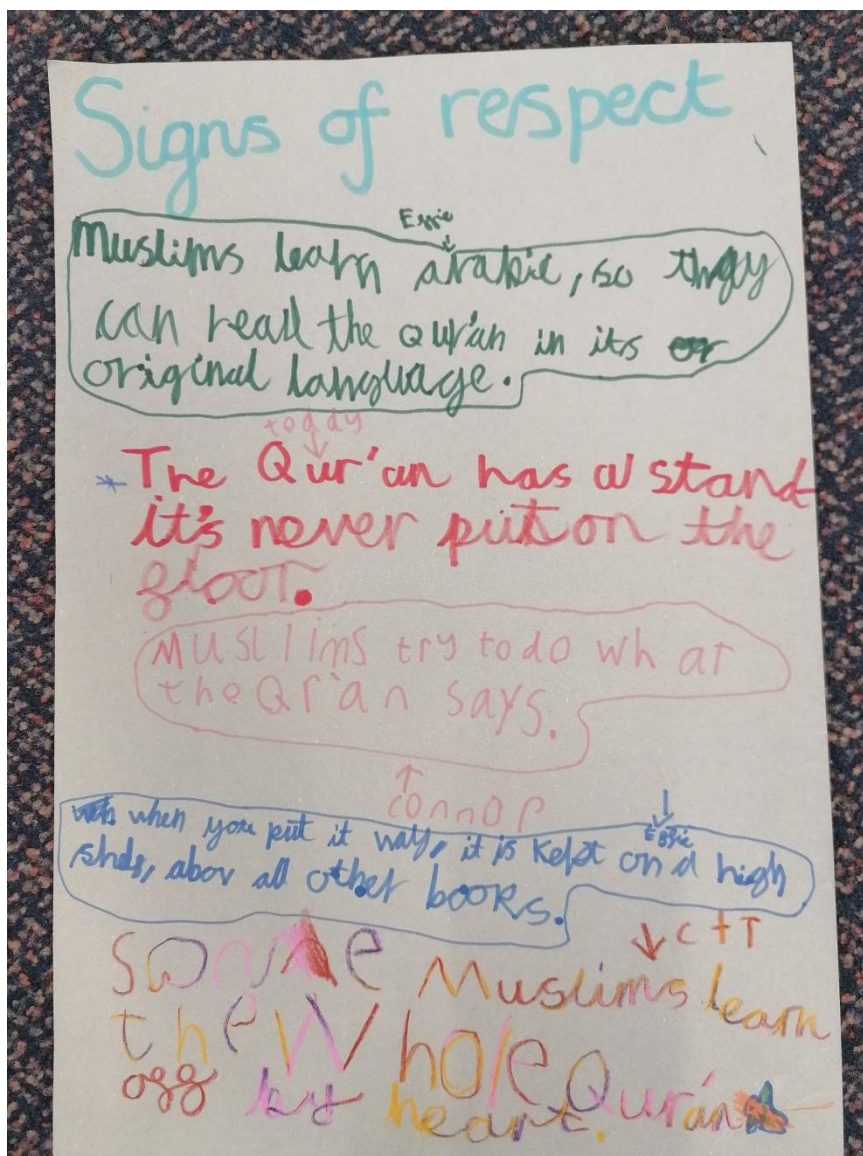 Signs of respect
Effie
Muslims learn arabic, so they
can read the Qur'an in its
original language.
The Qur'an has a stand
it's never put on the
floor.
MUSlims try to do what
the Qr'an says.
connor
when you put it way, it is kept on a high
Effie
shels, abov all other books.
C + T
some Muslims learn
the Whole Qur'an
off by heart.